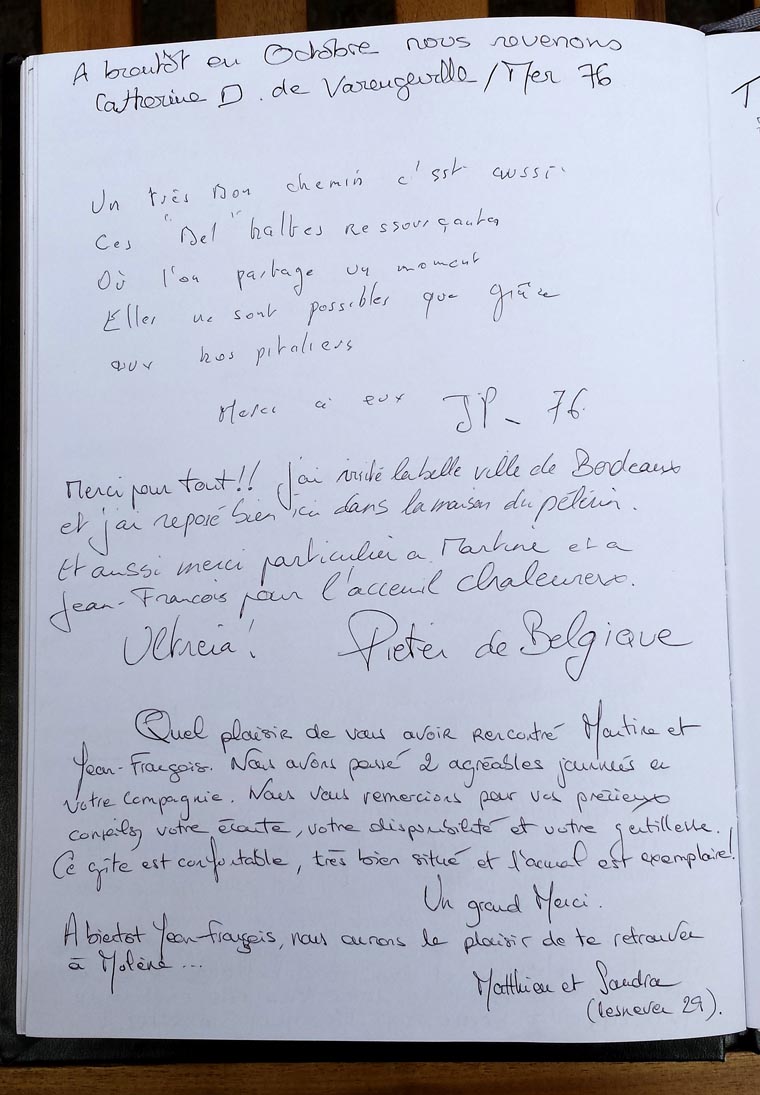 A bientôt en Octobre nous revenons
Catherine D. de Varengeville/Mer 76
Un très Bon chemin c'est aussi
Ces "Bel" haltes Ressourçantes
Où l'on partage un moment
Elles ne sont possibles que grâce
aux hospitaliers
Merci à eux JP_ 76
Merci pour tout!! j'ai visité la belle ville de Bordeaux
et j'ai reposé bien ici dans la maison du pélérin.
Et aussi merci particulier a Martine et a
Jean-François pour l'acceuil chaleureux.
Ultreia! Pieter de Belgique
Quel plaisir de vous avoir rencontré Martine et
Jean-François. Nous avons passé 2 agréables journées en
votre compagnie. Nous vous remercions pour vos précieux
conseils, votre écoute, votre disponibilité et votre gentillesse.
Ce gîte est confortable, très bien situé et l'accueil est exemplaire!
Un grand Merci.
A bientot Jean-François, nous aurons le plaisir de te retrouver
à Molène...
Matthieu et Sandra
(Lesneven 29).